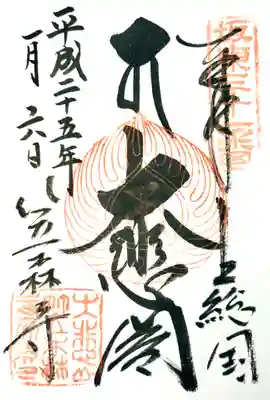 奉拝 上総国
大悲閣
平成二十五年
一月六日
笠森寺